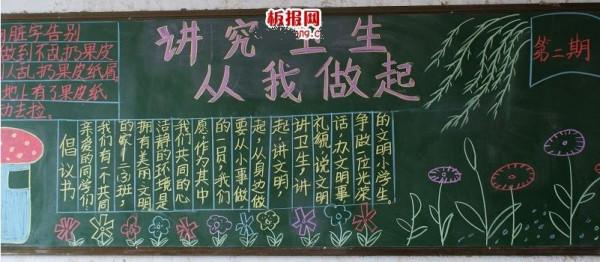 板报网
讲究卫生
从我做起
第二期
脏字告别
做到不乱扔果皮
乱扔果皮纸屑
地上有了果皮纸
动去捡。
倡议书
亲爱的同学们
我们有一个共同
的家
拥有美丽文明
洁静的环境是
我们共同的心
愿作为其中
的一员,我们
要从小事做
起,从身边做
起,讲文明,
讲卫生,讲
礼貌,说文明
话,办文明事
争做一位光荣
的文明小学生。